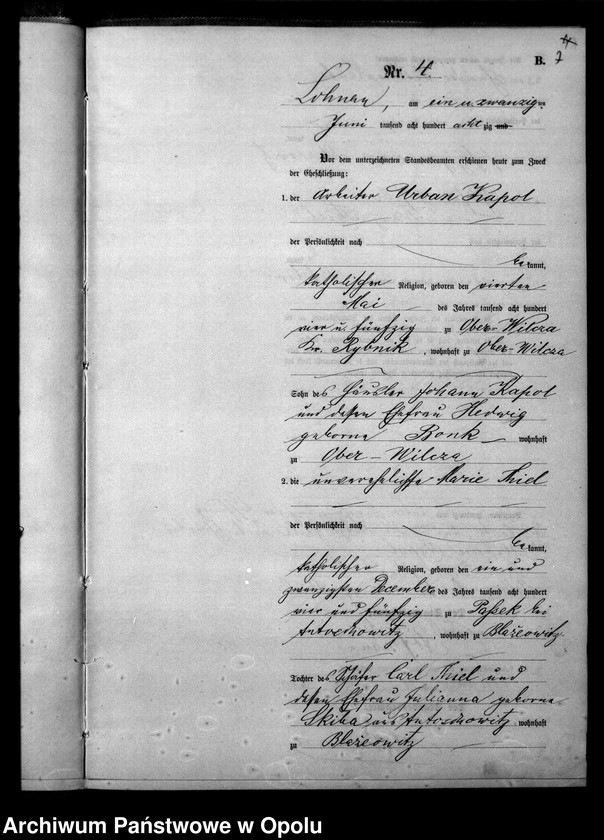 4
7
B.
Nr. 4.
Lohnau, am ein u. zwanzigsten
Juni tausend acht hundert achtzig und
Vor dem unterzeichneten Standesbeamten erschienen heute zum Zweck
der Eheschließung:
1. der Arbeiter Urban Kapol
der Persönlichkeit nach
bekannt,
katholischer Religion, geboren den vierten
Mai des Jahres tausend acht hundert
vier u. fünfzig zu Ober-Wilcza
Kr. Rybnik, wohnhaft zu Ober-Wilcza
Sohn des Häusler Johann Kapol
und dessen Ehefrau Hedwig
geborne Bonk wohnhaft
zu Ober-Wilcza
2. die unverehelichte Marie Thiel
der Persönlichkeit nach
bekannt,
katholischer Religion, geboren den ein und
zwanzigsten December des Jahres tausend acht hundert
vier und fünfzig zu Paßek bei
Antoschowitz, wohnhaft zu Blaźeowitz
Tochter des Schäfer Carl Thiel und
dessen Ehefrau Julianna geborne
Skiba aus Antoschowitz wohnhaft
zu Blaźeowitz
Archiwum Państwowe w Opolu